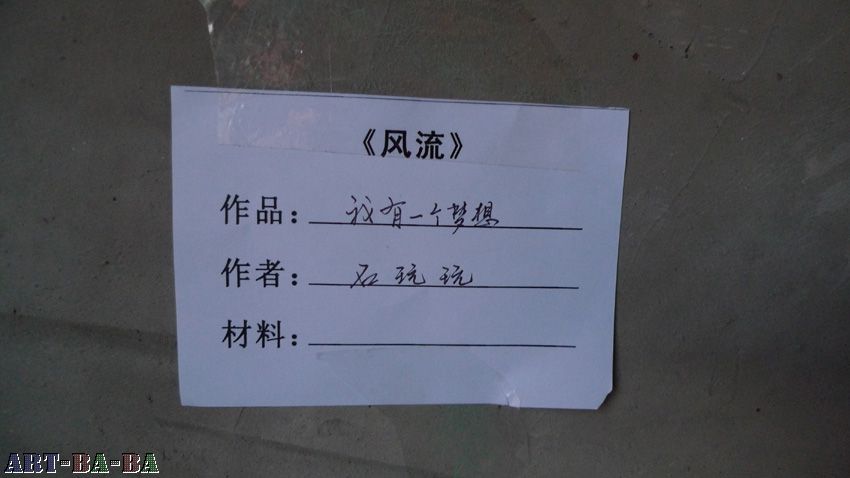 《风流》
作品：我有一个梦想
作者：石玩玩
材料：
ART-BA-BA